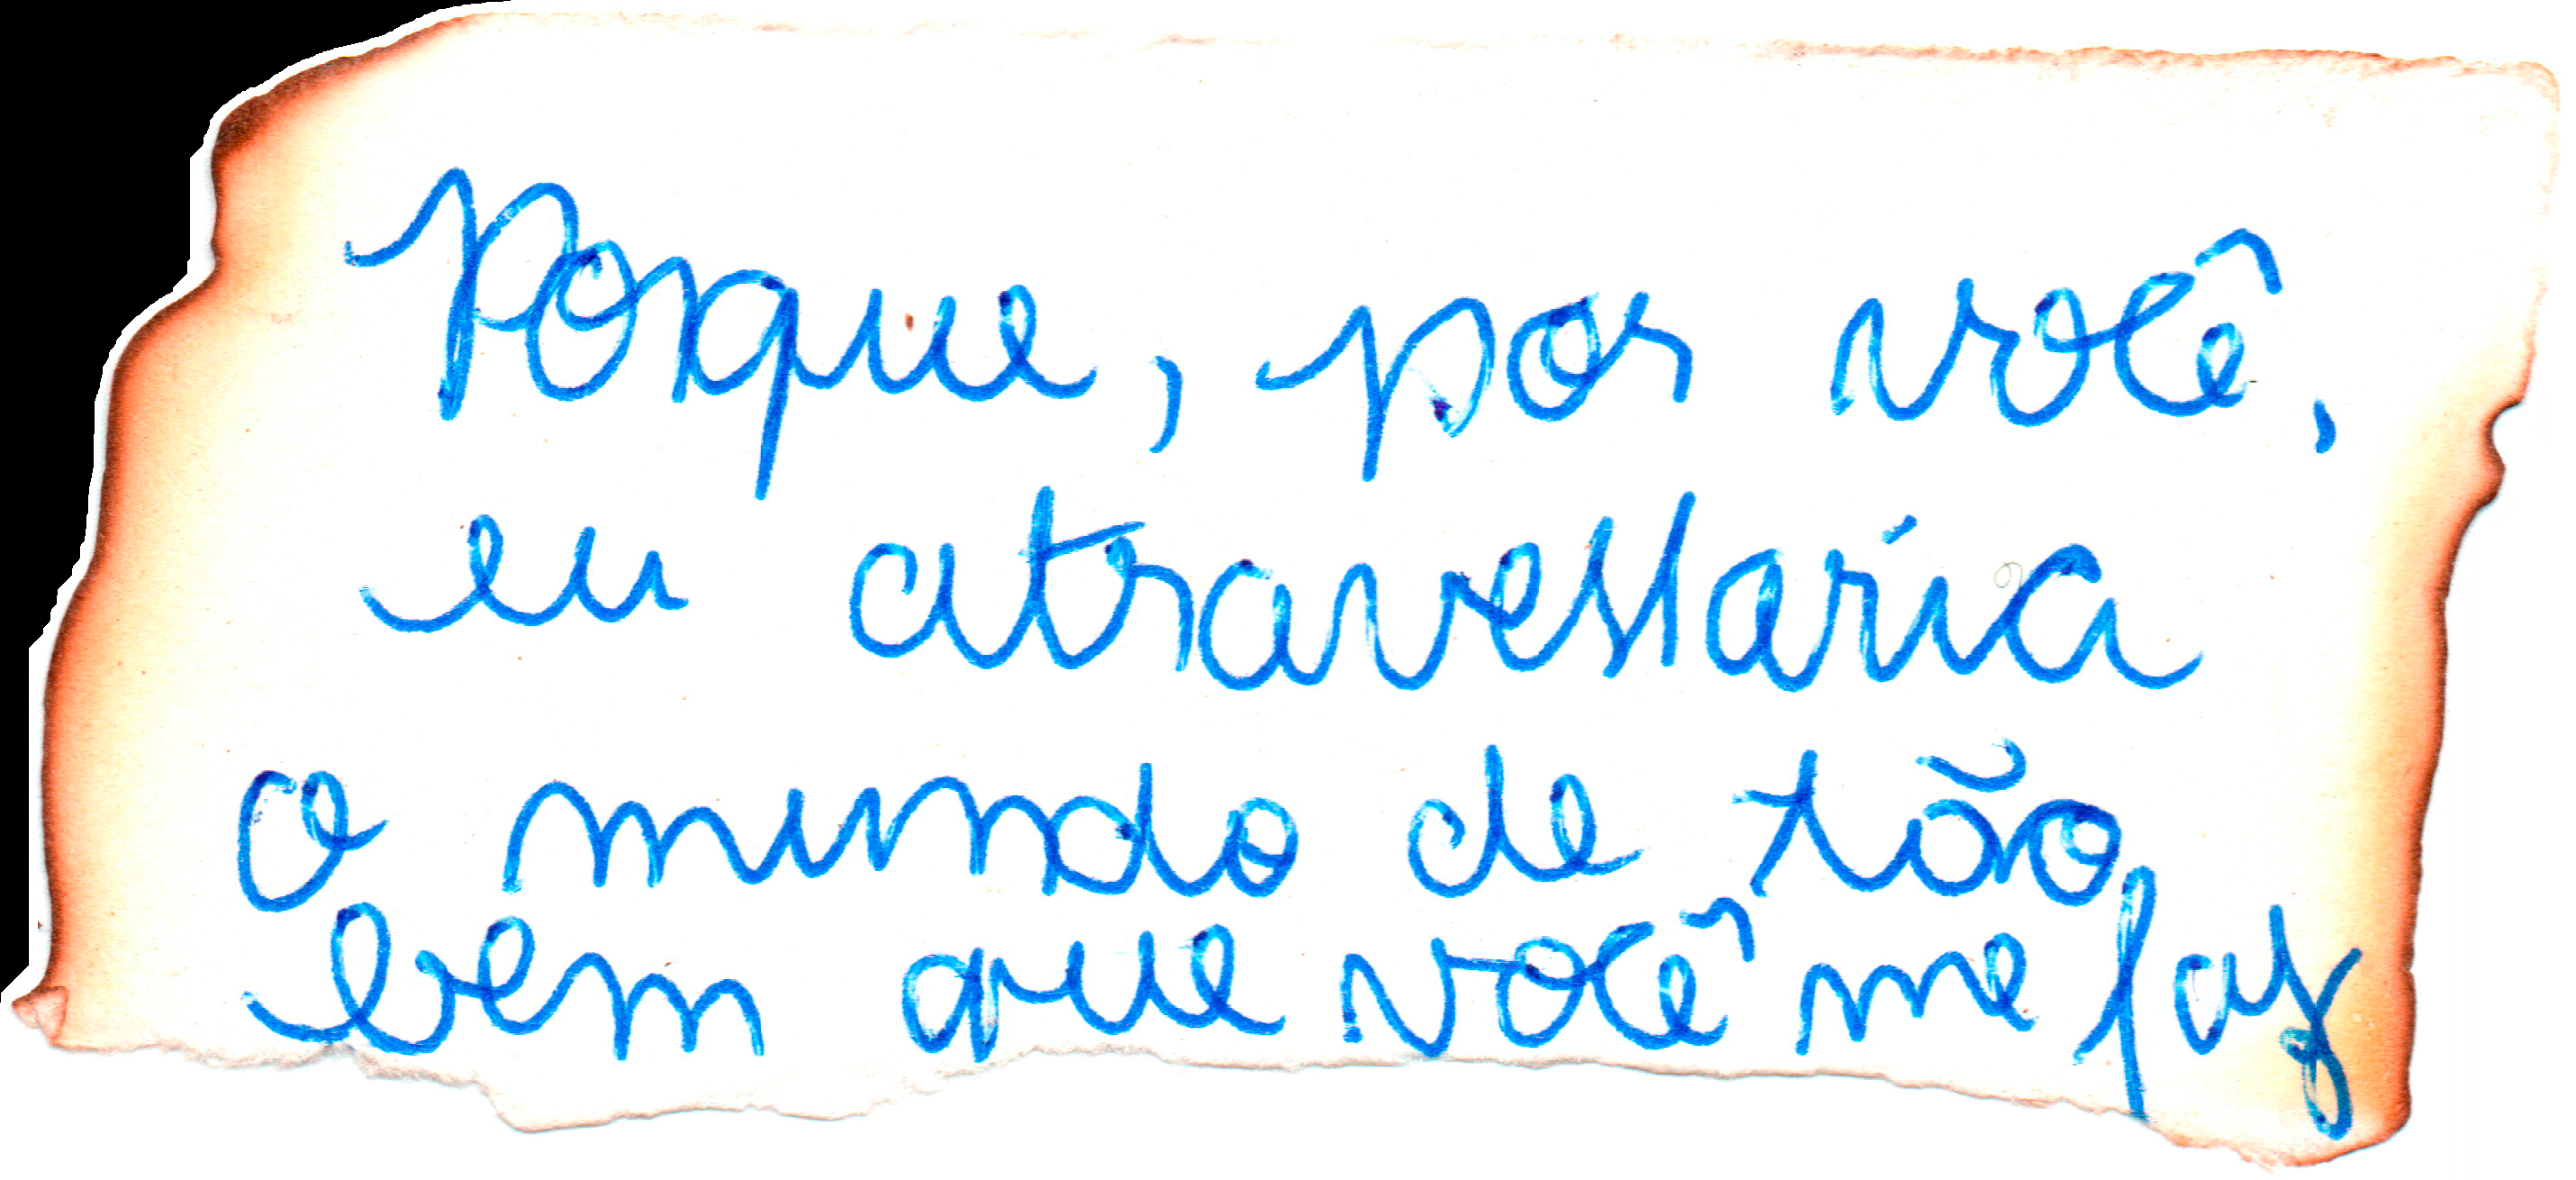 Porque, por você,
eu atravessaria
o mundo de tão
bem que você me faz